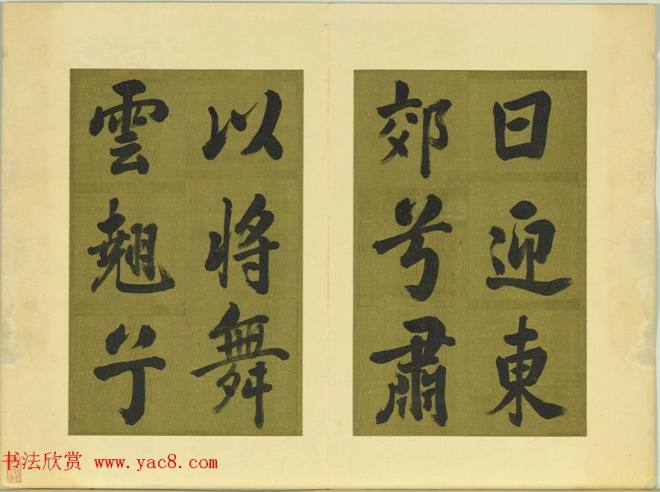 日迎東
郊兮肅
以將舞
雲翹兮
书法欣赏 www.yac8.com